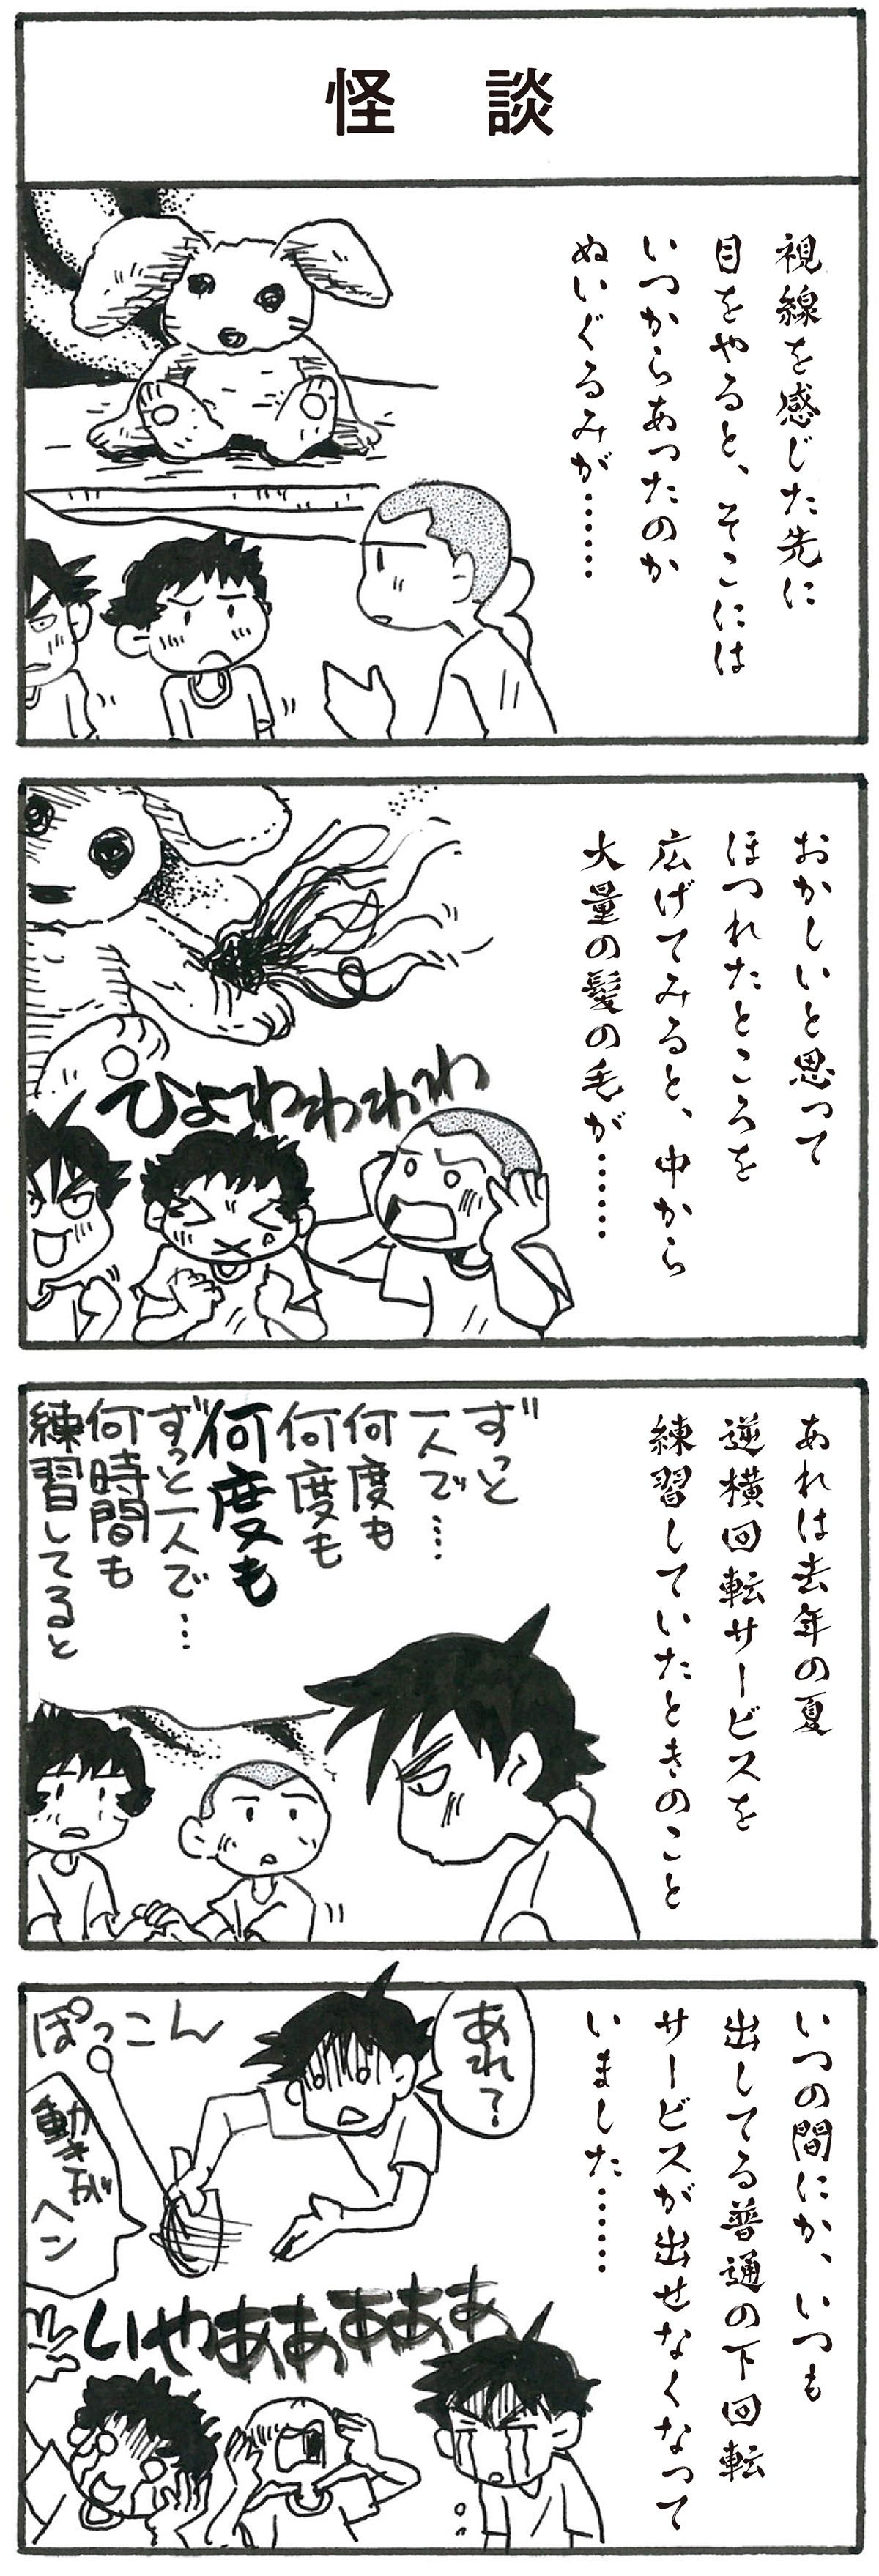 怪談
視線を感じた先に
目をやると、そこには
いつからあったのか
ぬいぐるみが……
おかしいと思って
ほつれたところを
広げてみると、中から
大量の髪の毛が……
ひょわわわわ
あれは去年の夏
逆横回転サービスを
練習していたときのこと
ずっと
一人で…
何度も
何度も
何度も
ずっと一人で…
何時間も
練習してると
いつの間にか、いつも
出してる普通の下回転
サービスが出せなくなって
いました……
あれ?
ぽっこん
動きが
ヘン
いやああああぁ